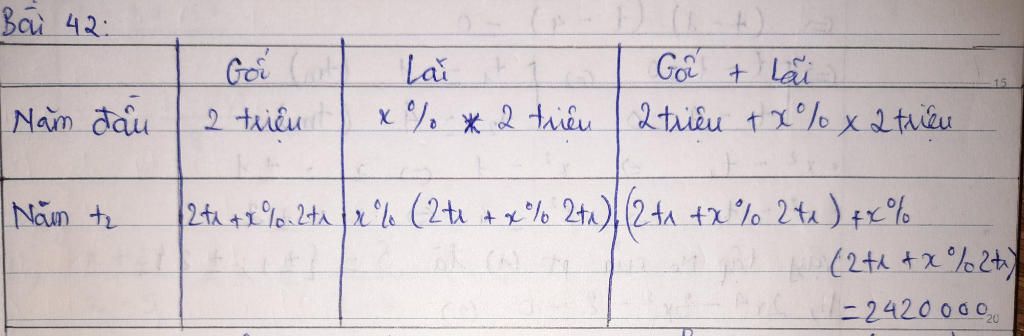 Bài 42:
Gối Lãi Gối + Lãi
Năm đầu 2 triệu x% × 2 triệu 2 triệu + x% × 2 triệu
Năm t2 2tr + x%. 2tr x% (2tr + x% 2tr) (2tr + x% 2tr) + x%
(2tr + x% 2tr)
= 2420000
15
20